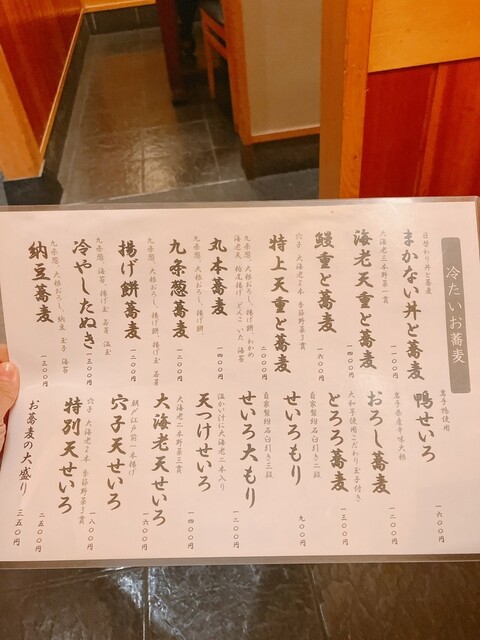 冷たいお蕎麦
日替わり丼と蕎麦
まかない丼と蕎麦
一一〇〇円
大海老二本野菜一貫
海老天重と蕎麦
鰻重と蕎麦
一六〇〇円
穴子 大海老2本 季節野菜3貫
特上天重と蕎麦
二〇〇〇円
九条葱、大根おろし、揚げ餅、わかめ
丸本蕎麦
一四〇〇円
九条葱、大根おろし、揚げ餅
九条葱蕎麦
一二〇〇円
九条葱、大根おろし、揚げ餅、揚げ玉 若芽
揚げ餅蕎麦
一二〇〇円
九条葱、海苔、揚げ玉 若芽 温玉
冷やしたぬき
一三〇〇円
九条葱、大根おろし、納豆 玉子 海苔
納豆蕎麦
一三〇〇円
岩手鴨使用
鴨せいろ
一六〇〇円
岩手県産辛味大根
おろし蕎麦
大和芋使用こだわり玉子付き
とろろ蕎麦
一三〇〇円
自家製粉石臼引き二段
せいろもり
九〇〇円
自家製粉石臼引き三段
せいろ大もり
一二〇〇円
温かい汁に大海老二本入り
天つけせいろ
一四〇〇円
大海老二本野菜三貫
大海老天せいろ
一六〇〇円
朝〆江戸前一本揚げ
穴子天せいろ
一八〇〇円
穴子 大海老2本 季節野菜3貫
特別天せいろ
二五〇〇円
お蕎麦の大盛り
三五〇円